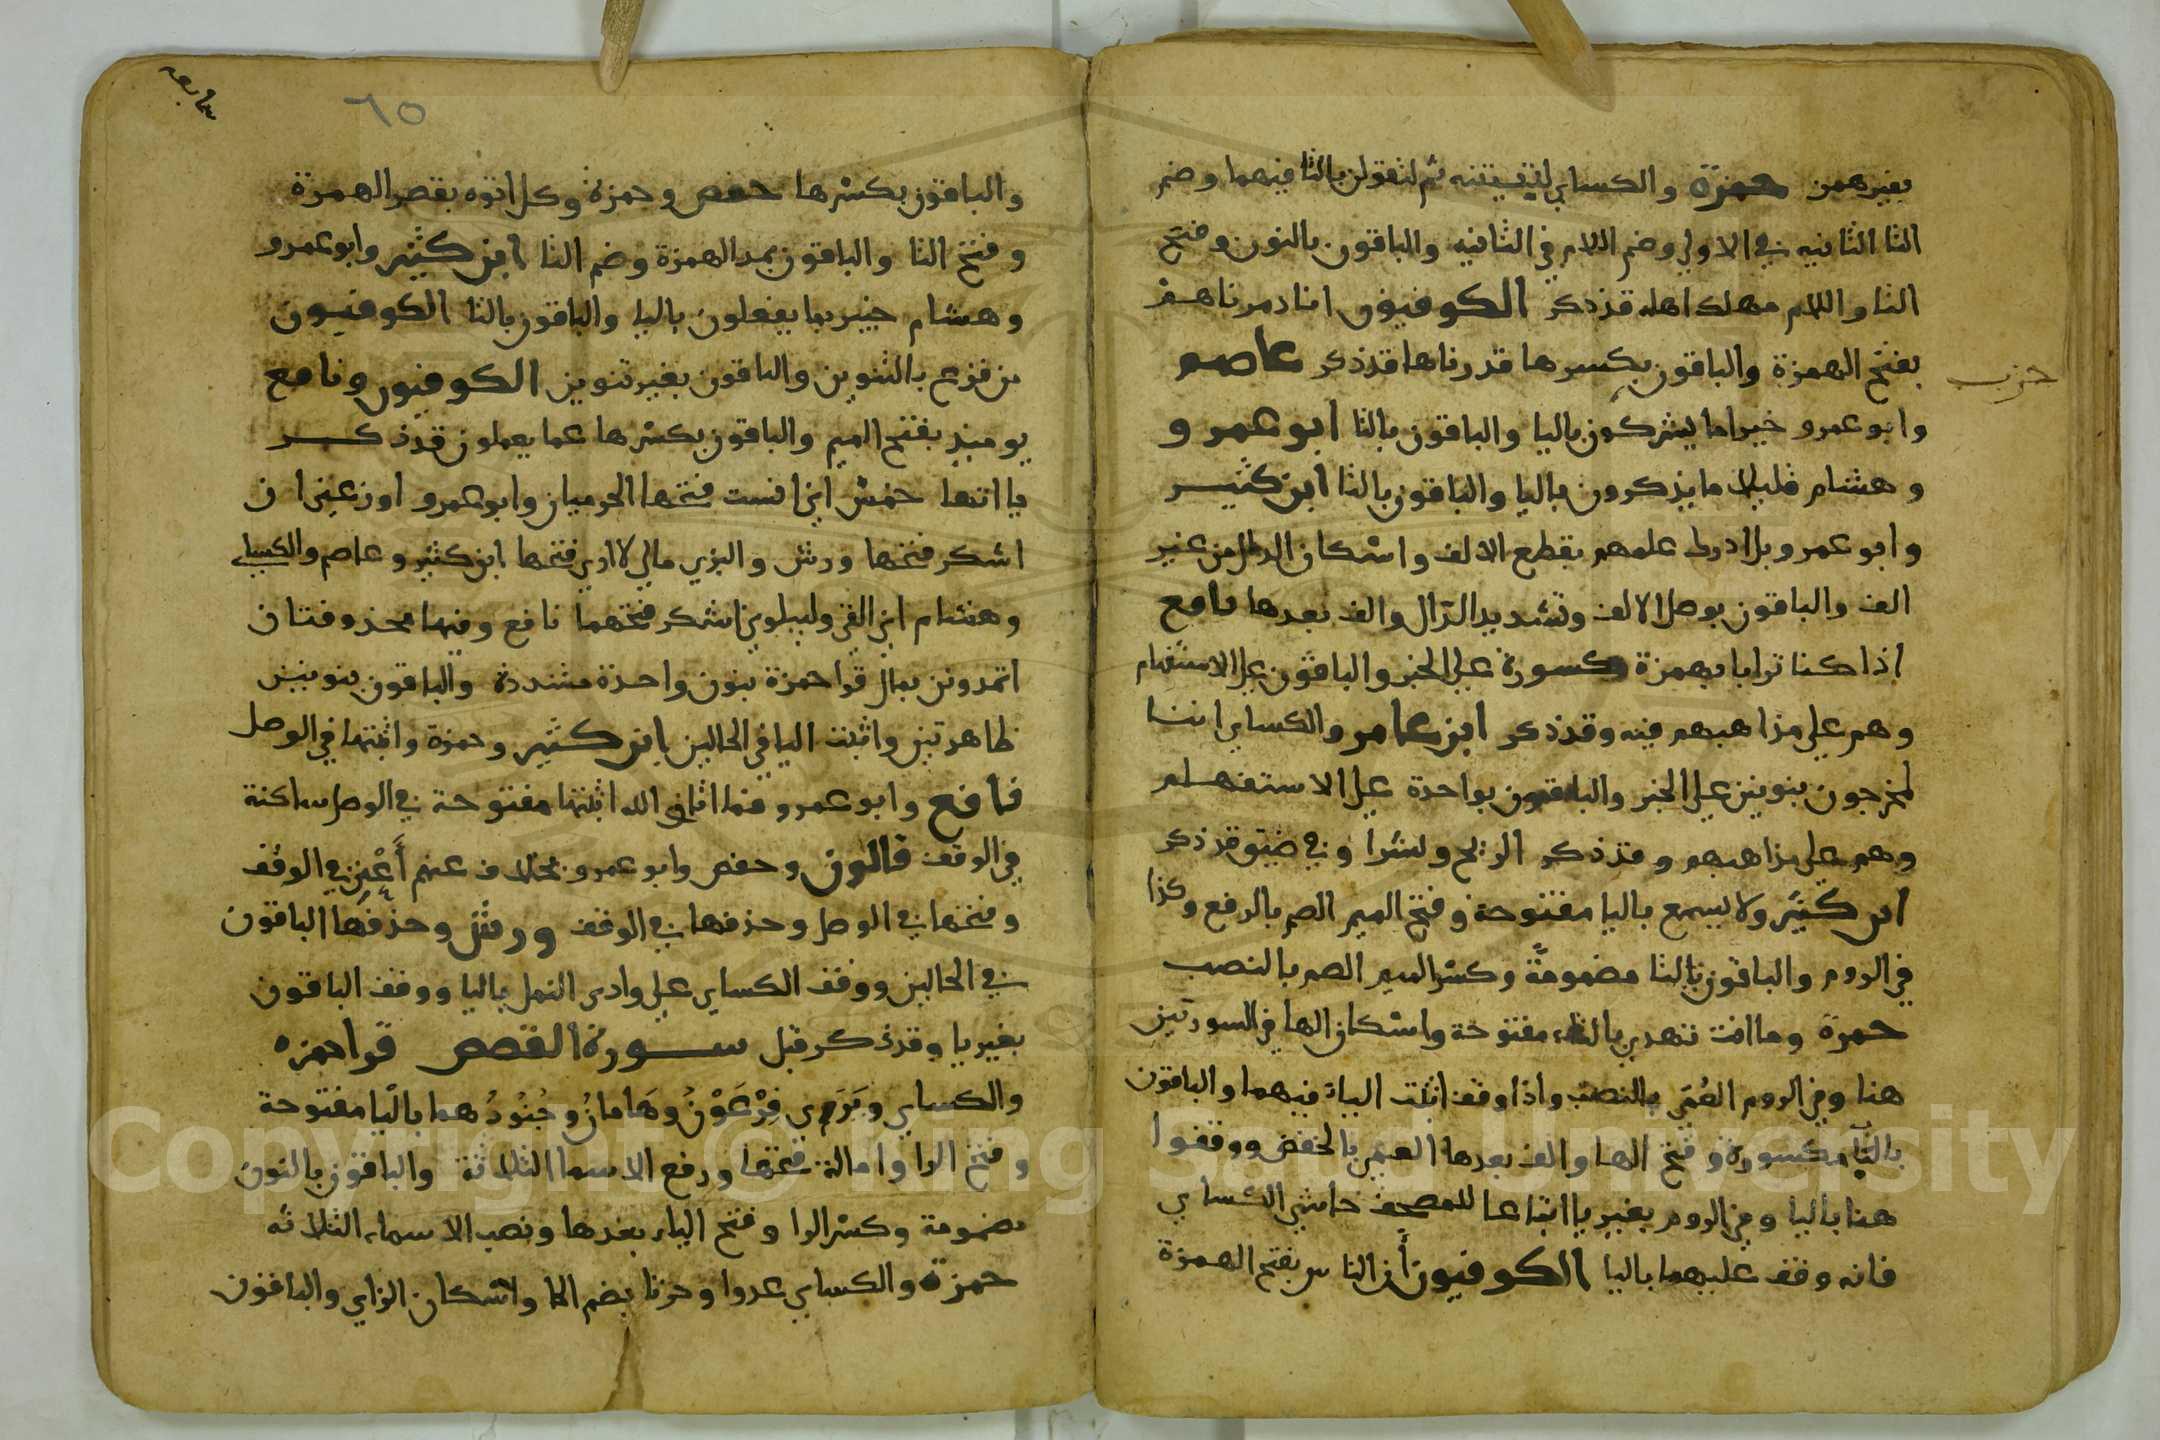 بغير همز حمزة والكساي لتبيتنه ثم لتقولن بالتا فيهما وضم
التا الثانيه في الاولي وضم اللام في الثانيه والباقون بالنون وفتح
التا واللام مهلك اهله قد ذكر الكوفيون انا دمرناهم
بفتح الهمزة والباقون بكسرها قدرناها قد ذكر عاصم
حزب
وابو عمرو خيراما يشركون باليا والباقون بالتا ابو عمرو
وهشام قليلا ما يذكرون باليا والباقون بالتا ابن كثير
وابو عمرو بل ادرك علمهم بقطع الالف واسكان الدال من غير
الف والباقون بوصل الالف وتشديد الدال والف بعدها نافع
اذا كنا ترابا بهمزة مكسورة علي الخبر والباقون علي الاستفهام
وهم علي مذاهبهم فيه وقد ذكر ابن عامر والكساي اننا
لمخرجون بنونين علي الخبر والباقون بواحدة علي الاستفهام
وهم علي مذاهبهم وقد ذكر الريح ونشرا وفي ضيق قد ذكر
ابن كثير ولا يسمع باليا مفتوحة وفتح الميم الصم بالرفع وكذا
في الروم والباقون بالتا مضمومة وكسر الميم الصم بالنصب
حمزة وما انت تهدي بالتاء مفتوحة واسكان الها في السورتين
هنا وفي الروم العُمْيَ بالنصب واذا وقف اثبت الياء فيهما والباقون
بالبا مكسورة وفتح الها والف بعدها العمي بالخفض ووقفوا
هنا باليا وفي الروم بغير يا اتباعا للمصحف حاشي الكساي
فانه وقف عليهما باليا الكوفيون أن الناس بفتح الهمزة
٦٥
والباقون بكسرها حفص وحمزة وكل اتوه بقصر الهمزة
وفتح التا والباقون بمد الهمزة وضم التا ابن كثير وابو عمرو
وهشام خبير بما يفعلون باليا والباقون بالتا الكوفيون
من فزع بالتنوين والباقون بغير تنوين الكوفيون ونافع
يوميذ بفتح الميم والباقون بكسرها عما يعملون قد ذكر
يااتها خمس اني انست فتحها الحرميان وابو عمرو اوزعني ان
اشكر فتحها ورش والبزي مالي لا اري فتحها ابن كثير وعاصم والكساي
وهشام اني القي وليبلوني اشكر فتحهما نافع وفيها محذوفتان
اتمدونن بمال قرا حمزة بنون واحدة مشددة والباقون بنونين
ظاهرتين واثبت اليا في الحالين ابن كثير وحمزة واثبتها في الوصل
نافع وابو عمرو فما اتاني الله اثبتها مفتوحة في الوصل ساكنة
في الوقف قالون وحفص وابو عمرو بخلاف عنهم أعْني في الوقف
وفتحها في الوصل وحذفها في الوقف ورش وحذفها الباقون
في الحالين ووقف الكساي علي وادي النمل باليا ووقف الباقون
بغير يا وقد ذكر قبل سورة القصص قرا حمزه
والكساي ويَرَي فِرْعَوْنُ وهَامانُ وجُنُودُهما بالْيا مفتوحة
وفتح الرا وامالة فتحتها ورفع الاسما الثلاثة والباقون بالنون
مضمومة وكسر الرا وفتح الياء بعدها ونصب الاسماء الثلاثه
حمزة والكساي عدوا وحزنا بضم الحا واسكان الزاي والباقون